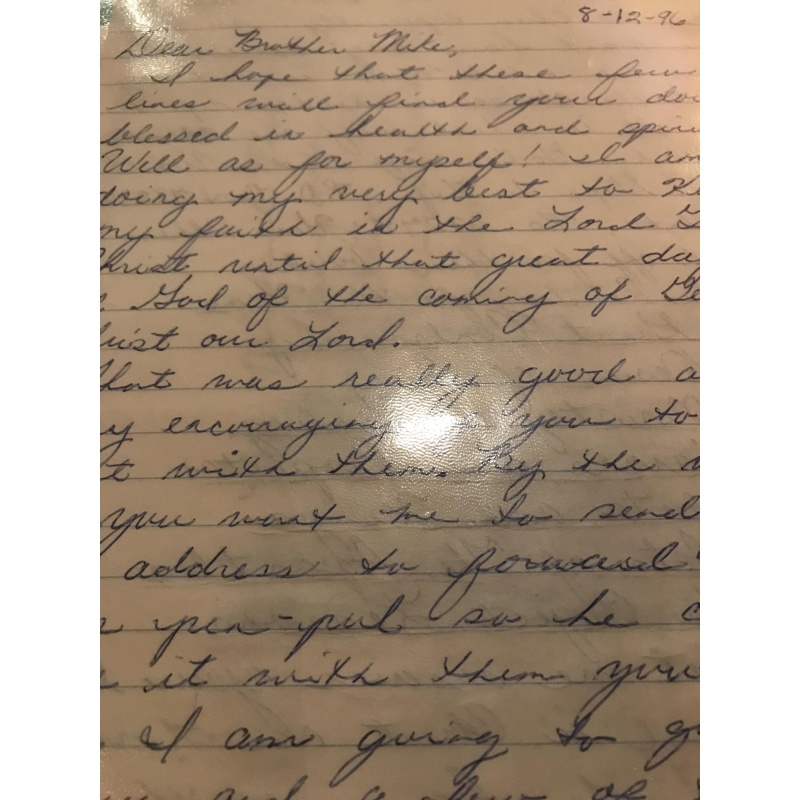 8-12-96
Dear Brother Mike,
I hope that these few
lines will find your
blessed in health and
Well as for myself! I am
doing my very best to
my faith in the Lord
until that great
God of the coming of
our Lord.
was really good
encouraging you to
with them. By the
you want me to send
address to forward
pen-pal so he
it with them you
I am going to
and a few of